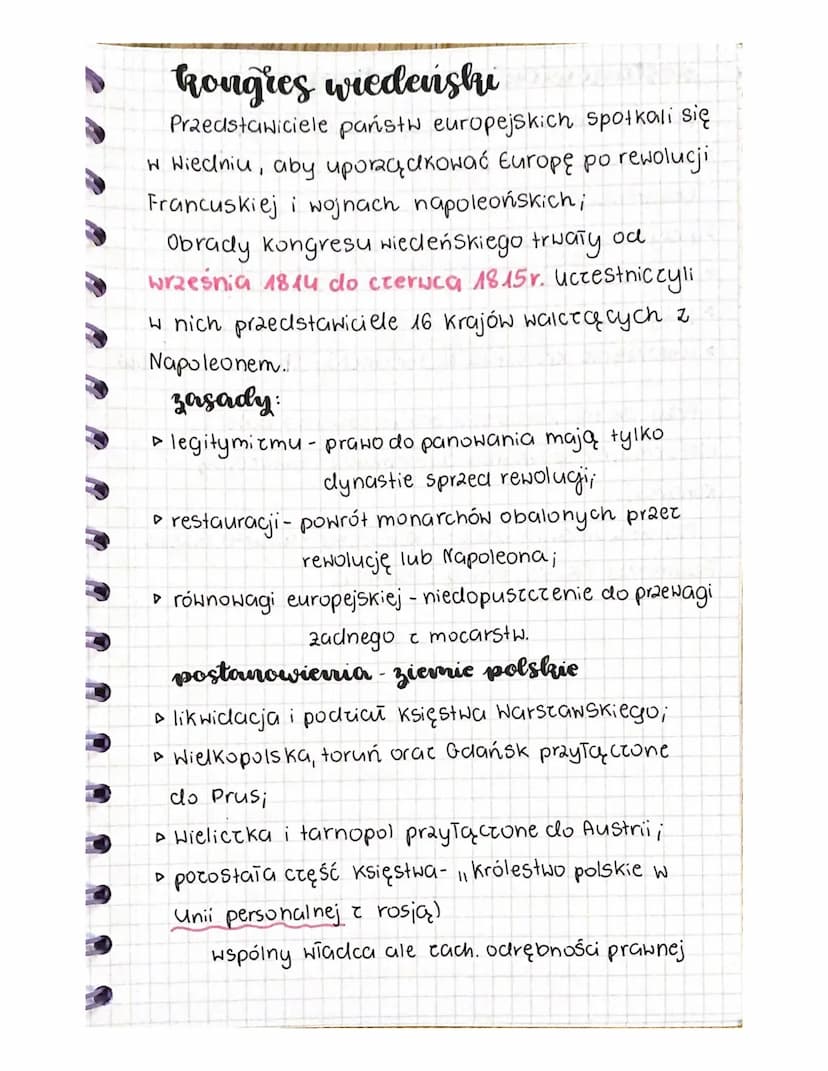 kongres wiedeński
Przedstawiciele państw europejskich spotkali się
w Wiedniu, aby uporządkować Europę po rewolucji
Francuskiej i wojnach napoleońskich;
Obrady Kongresu wiedeńskiego trwały od
września 1814 do czerwca 1815r. Uczestniczyli
w nich przedstawiciele 16 Krajów walczących z
Napoleonem.
zasady:
▹ legitymizmu - prawo do panowania mają tylko
dynastie sprzed rewolucji;
▹ restauracji - powrót monarchów obalonych przez
rewolucję lub Napoleona;
▹ równowagi europejskiej - niedopuszczenie do przewagi
żadnego z mocarstw.
postanowienia - ziemie polskie
▹ likwidacja i podział Księstwa Warszawskiego;
▹ Wielkopolska, toruń oraz Gdańsk przyłączone
do Prus;
▹ Wieliczka i tarnopol przyłączone do Austrii;
▹ pozostała część Księstwa - „Królestwo polskie w
Unii personalnej z rosją)
wspólny władca ale zach. odrębności prawnej